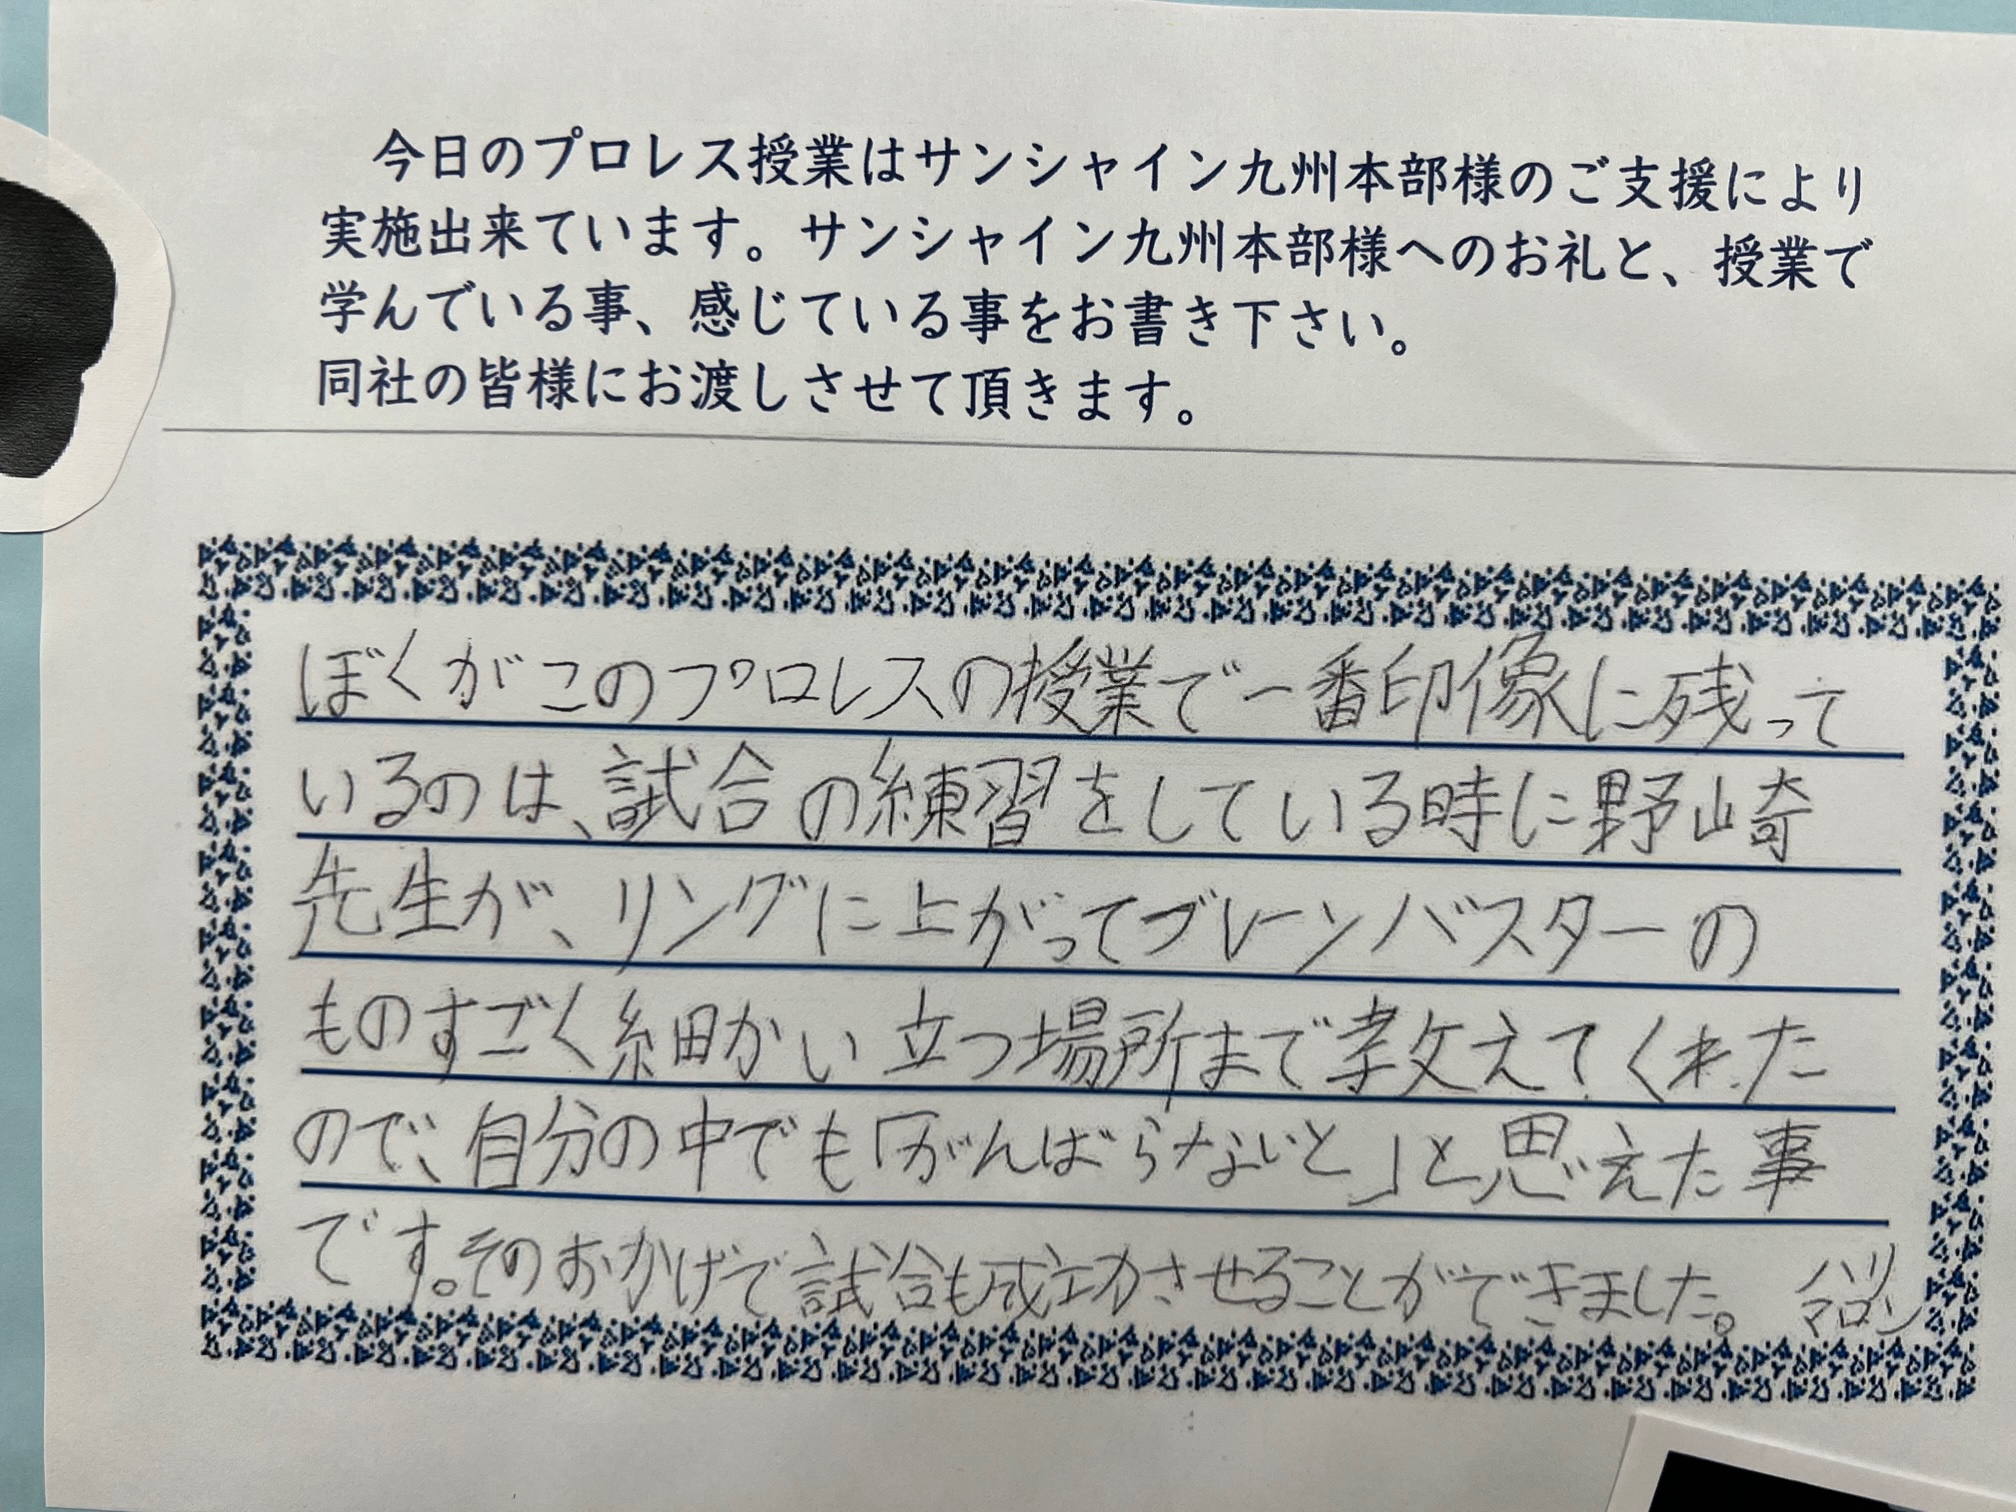 今日のプロレス授業はサンシャイン九州本部様のご支援により
実施出来ています。サンシャイン九州本部様へのお礼と、授業で
学んでいる事、感じている事をお書き下さい。
同社の皆様にお渡しさせて頂きます。
ぼくがこのプロレスの授業で一番印像に残って
いるのは、試合の練習をしている時に野崎
先生が、リングに上がってブレーンバスターの
ものすごく細かい立つ場所まで教えてくれた
ので、自分の中でも「がんばらないと」と思えた事
です。そのおかげで試合も成功させることができました。
マロン